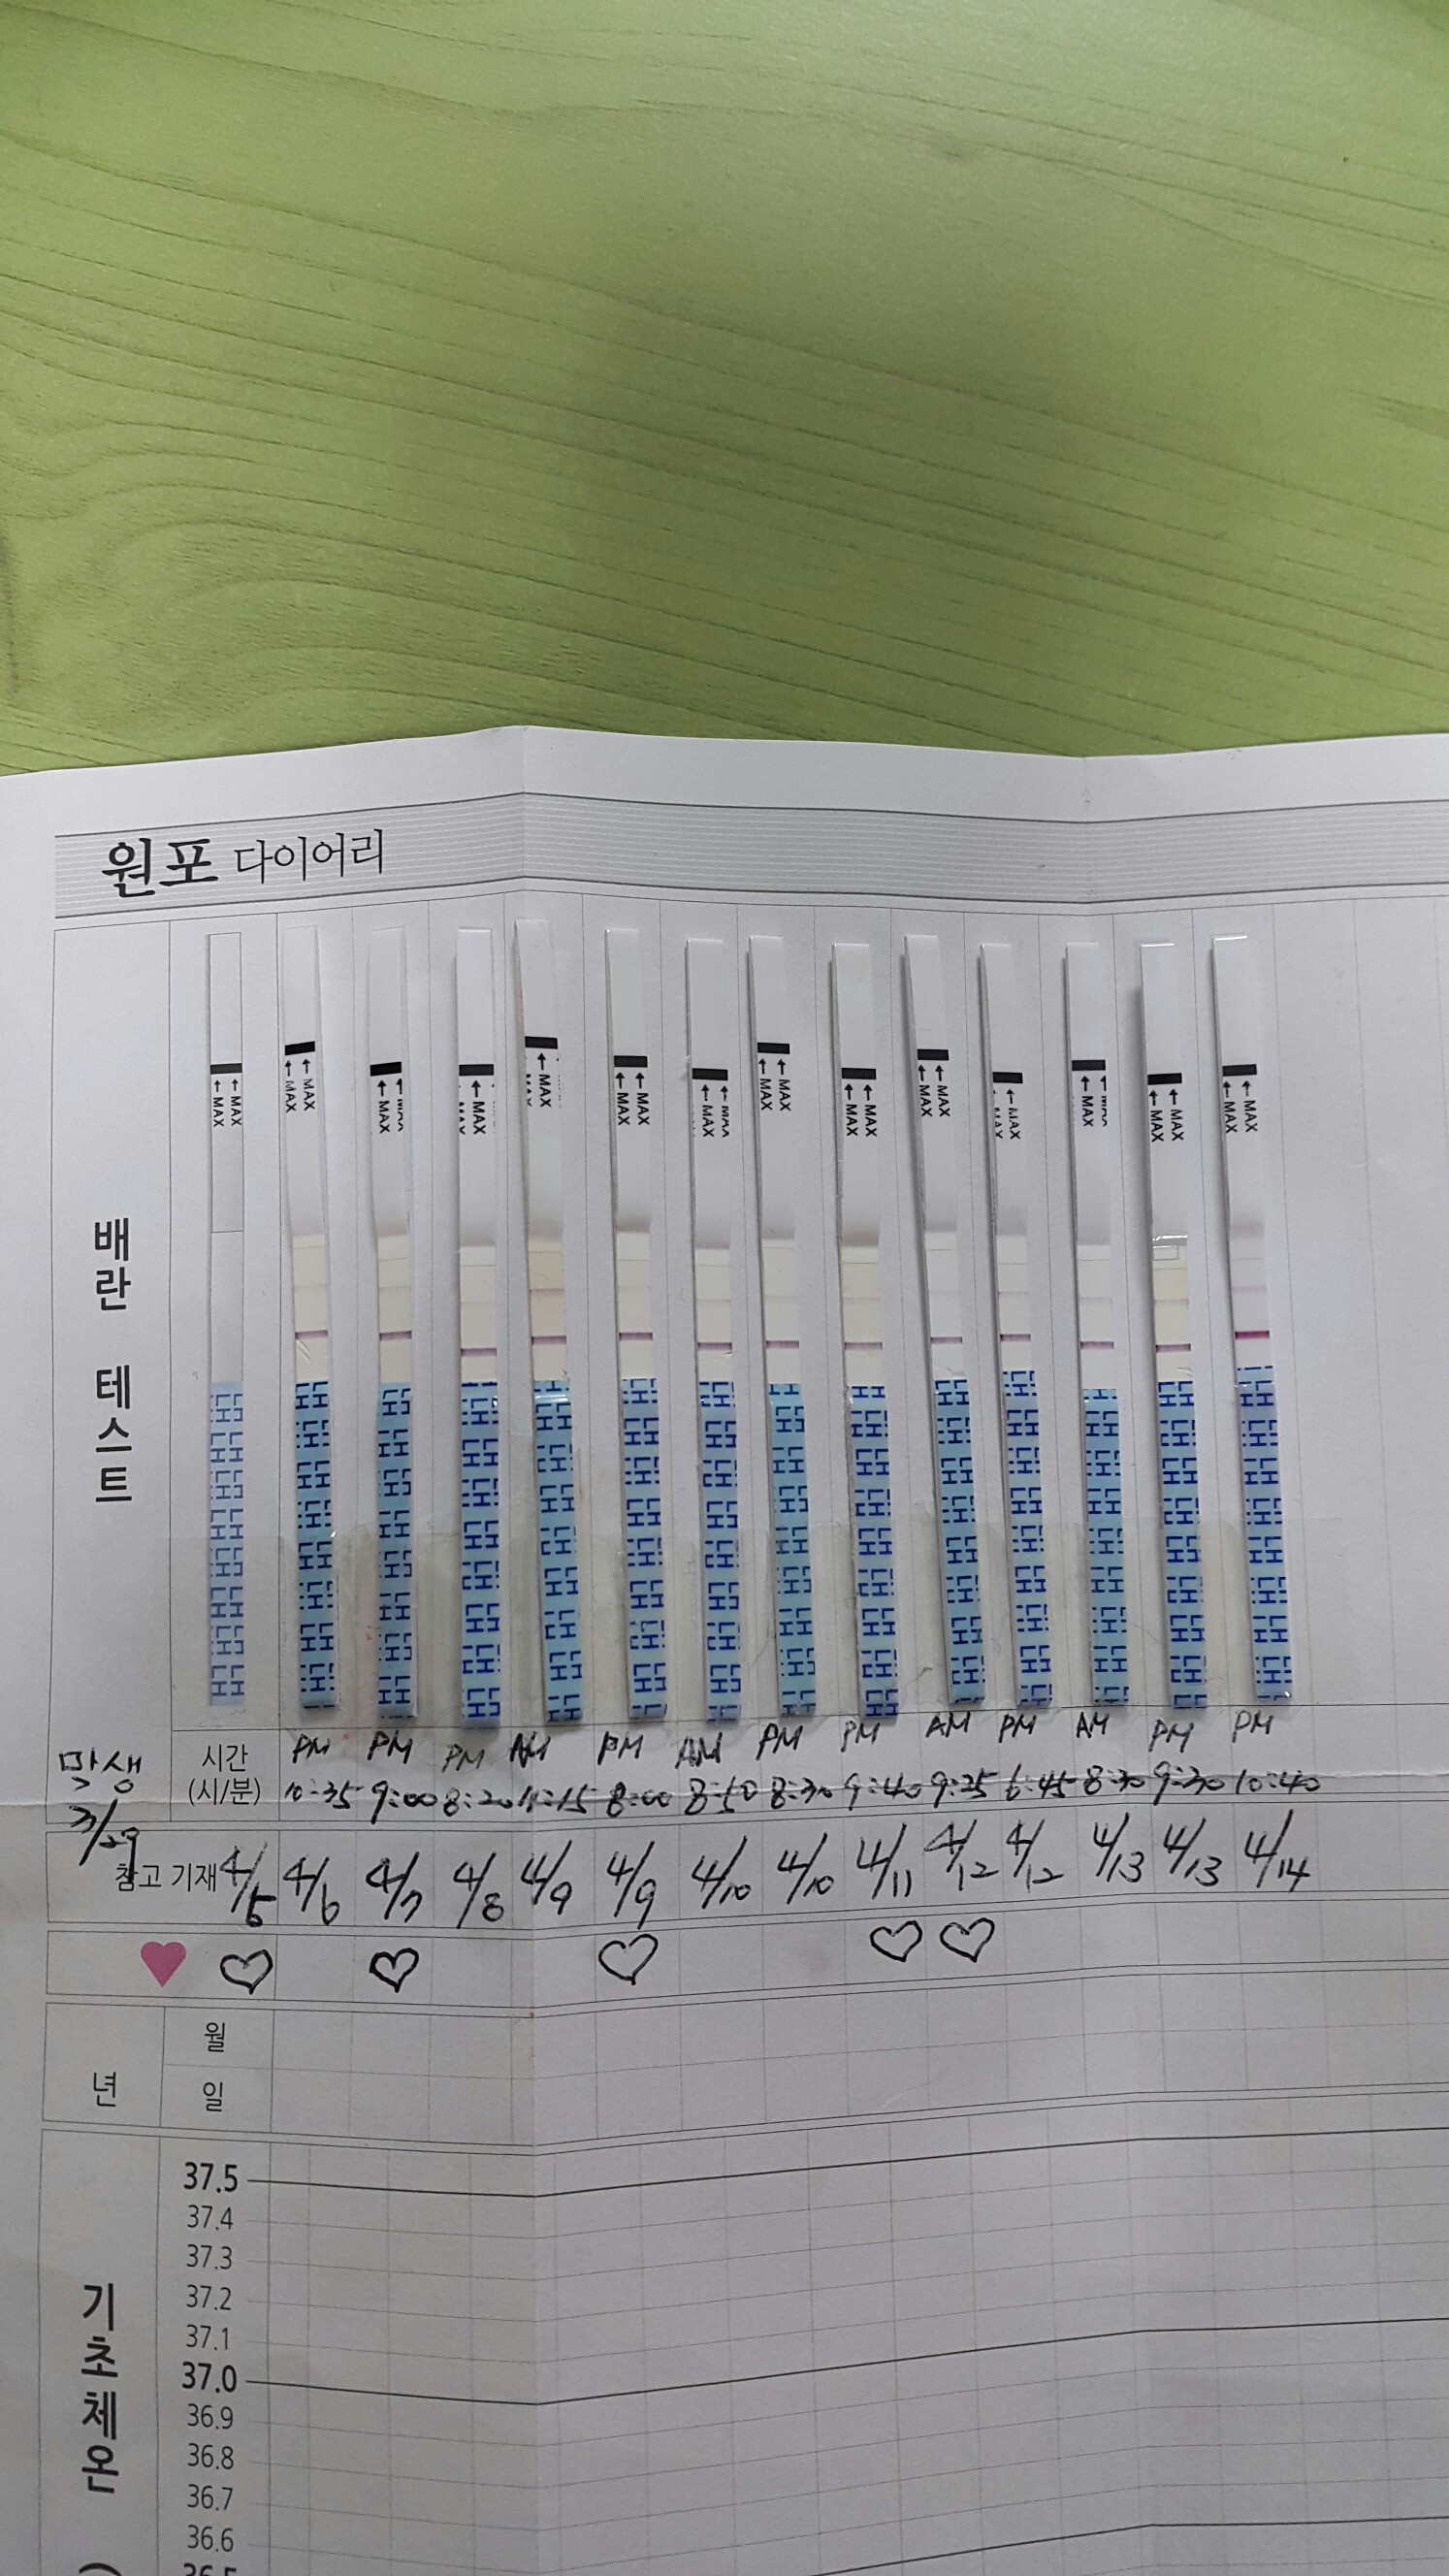 원포 다이어리
배란 테스트
← MAX ← MAX
LH LH LH LH LH LH
막생
3/29
시간
(시/분)
PM PM PM AM PM AM PM PM AM PM AM PM PM
10:35 9:00 8:20 11:15 8:00 8:50 8:30 9:40 9:25 6:45 8:30 9:30 10:40
참고 기재 4/5 4/6 4/7 4/8 4/9 4/9 4/10 4/10 4/11 4/12 4/12 4/13 4/13 4/14
년
월
일
기초체온 (
37.5
37.4
37.3
37.2
37.1
37.0
36.9
36.8
36.7
36.6
36.5